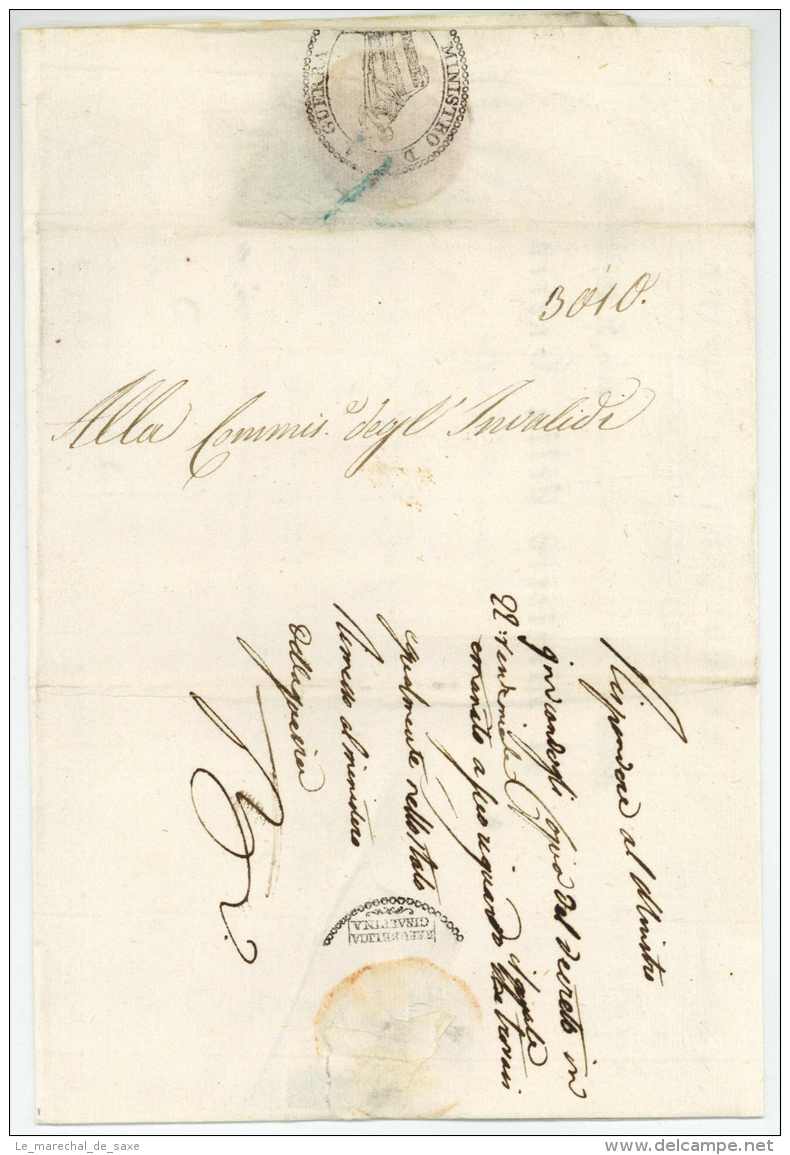 MINISTRO D
GUERRA
3010.
Alla Commis.e degl' Invalidi
Rispondere al Ministro
inviandogli Copia del decreto in
emanato a suo riguardo il quale
egualmente nello stato
Rimesso al ministero
della guerra
REPUBBLICA
CISALPINA
Le_marechal_de_saxe
www.delcampe.net